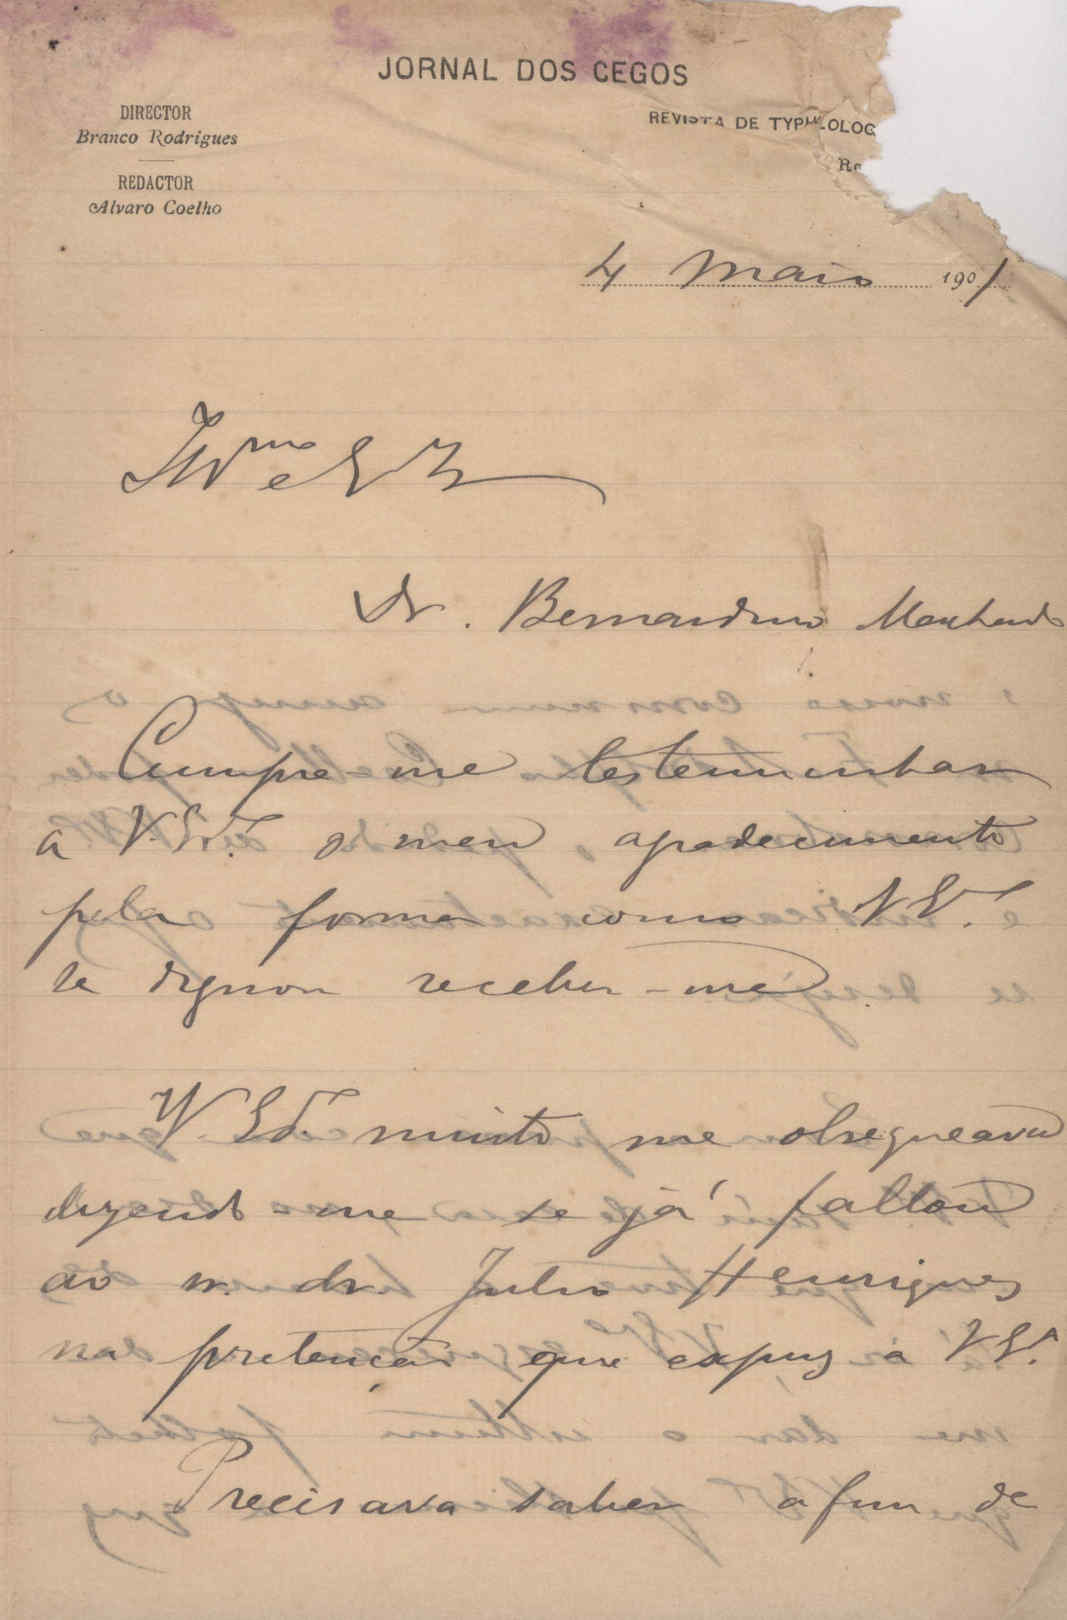 JORNAL DOS CEGOS
REVISTA DE TYPHLOLOG
DIRECTOR
Branco Rodrigues
REDACTOR
Alvaro Coelho
4 Maio 1901
Illmo e Ex
Dr. Bernardino Machado
Cumpre-me testemunhar
a V. Exª. o meu agradecimento
pela forma como V. Exª.
se dignou receber-me.
V. Exª. muito me obsequeava
dizendo-me se já fallou
ao sr. dr. Julio Henriques
na pretenção que expuz a V Exª.
Precisava saber afim de